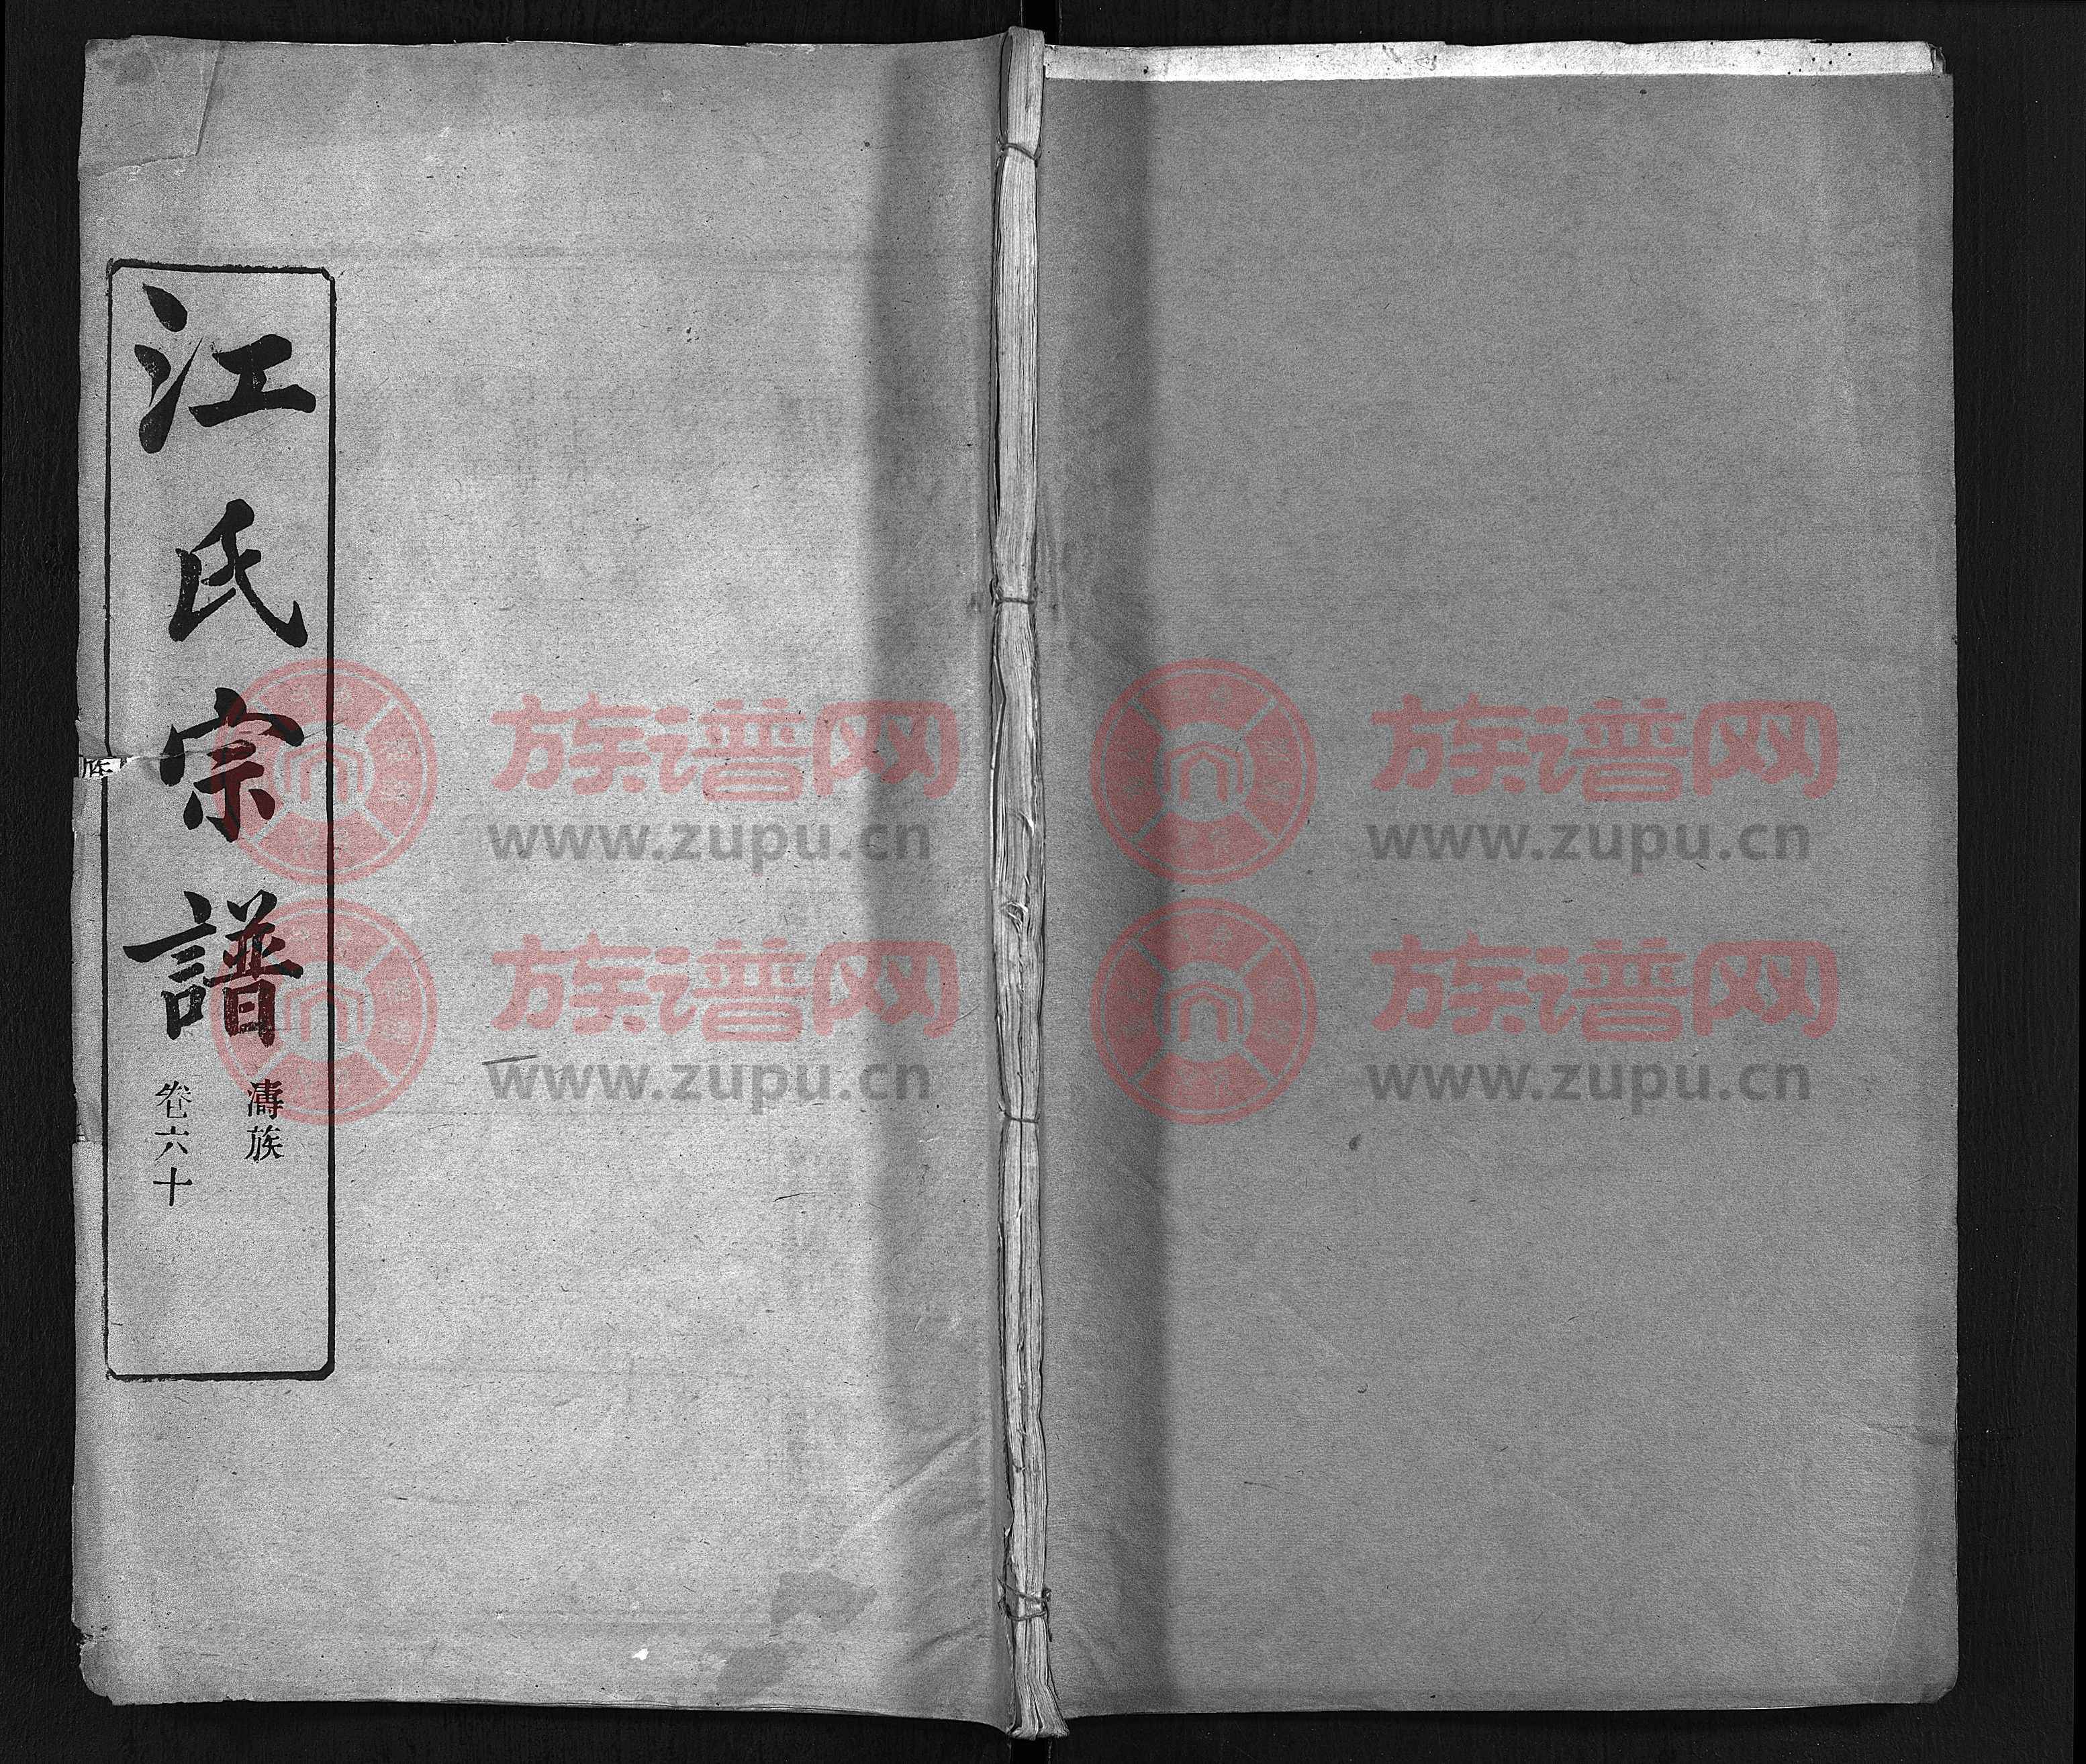 江氏宗譜
濤族
卷六十
族
族谱网
www.zupu.cn
族谱网
www.zupu.cn
族谱网
www.zupu.cn
族谱网
www.zupu.cn